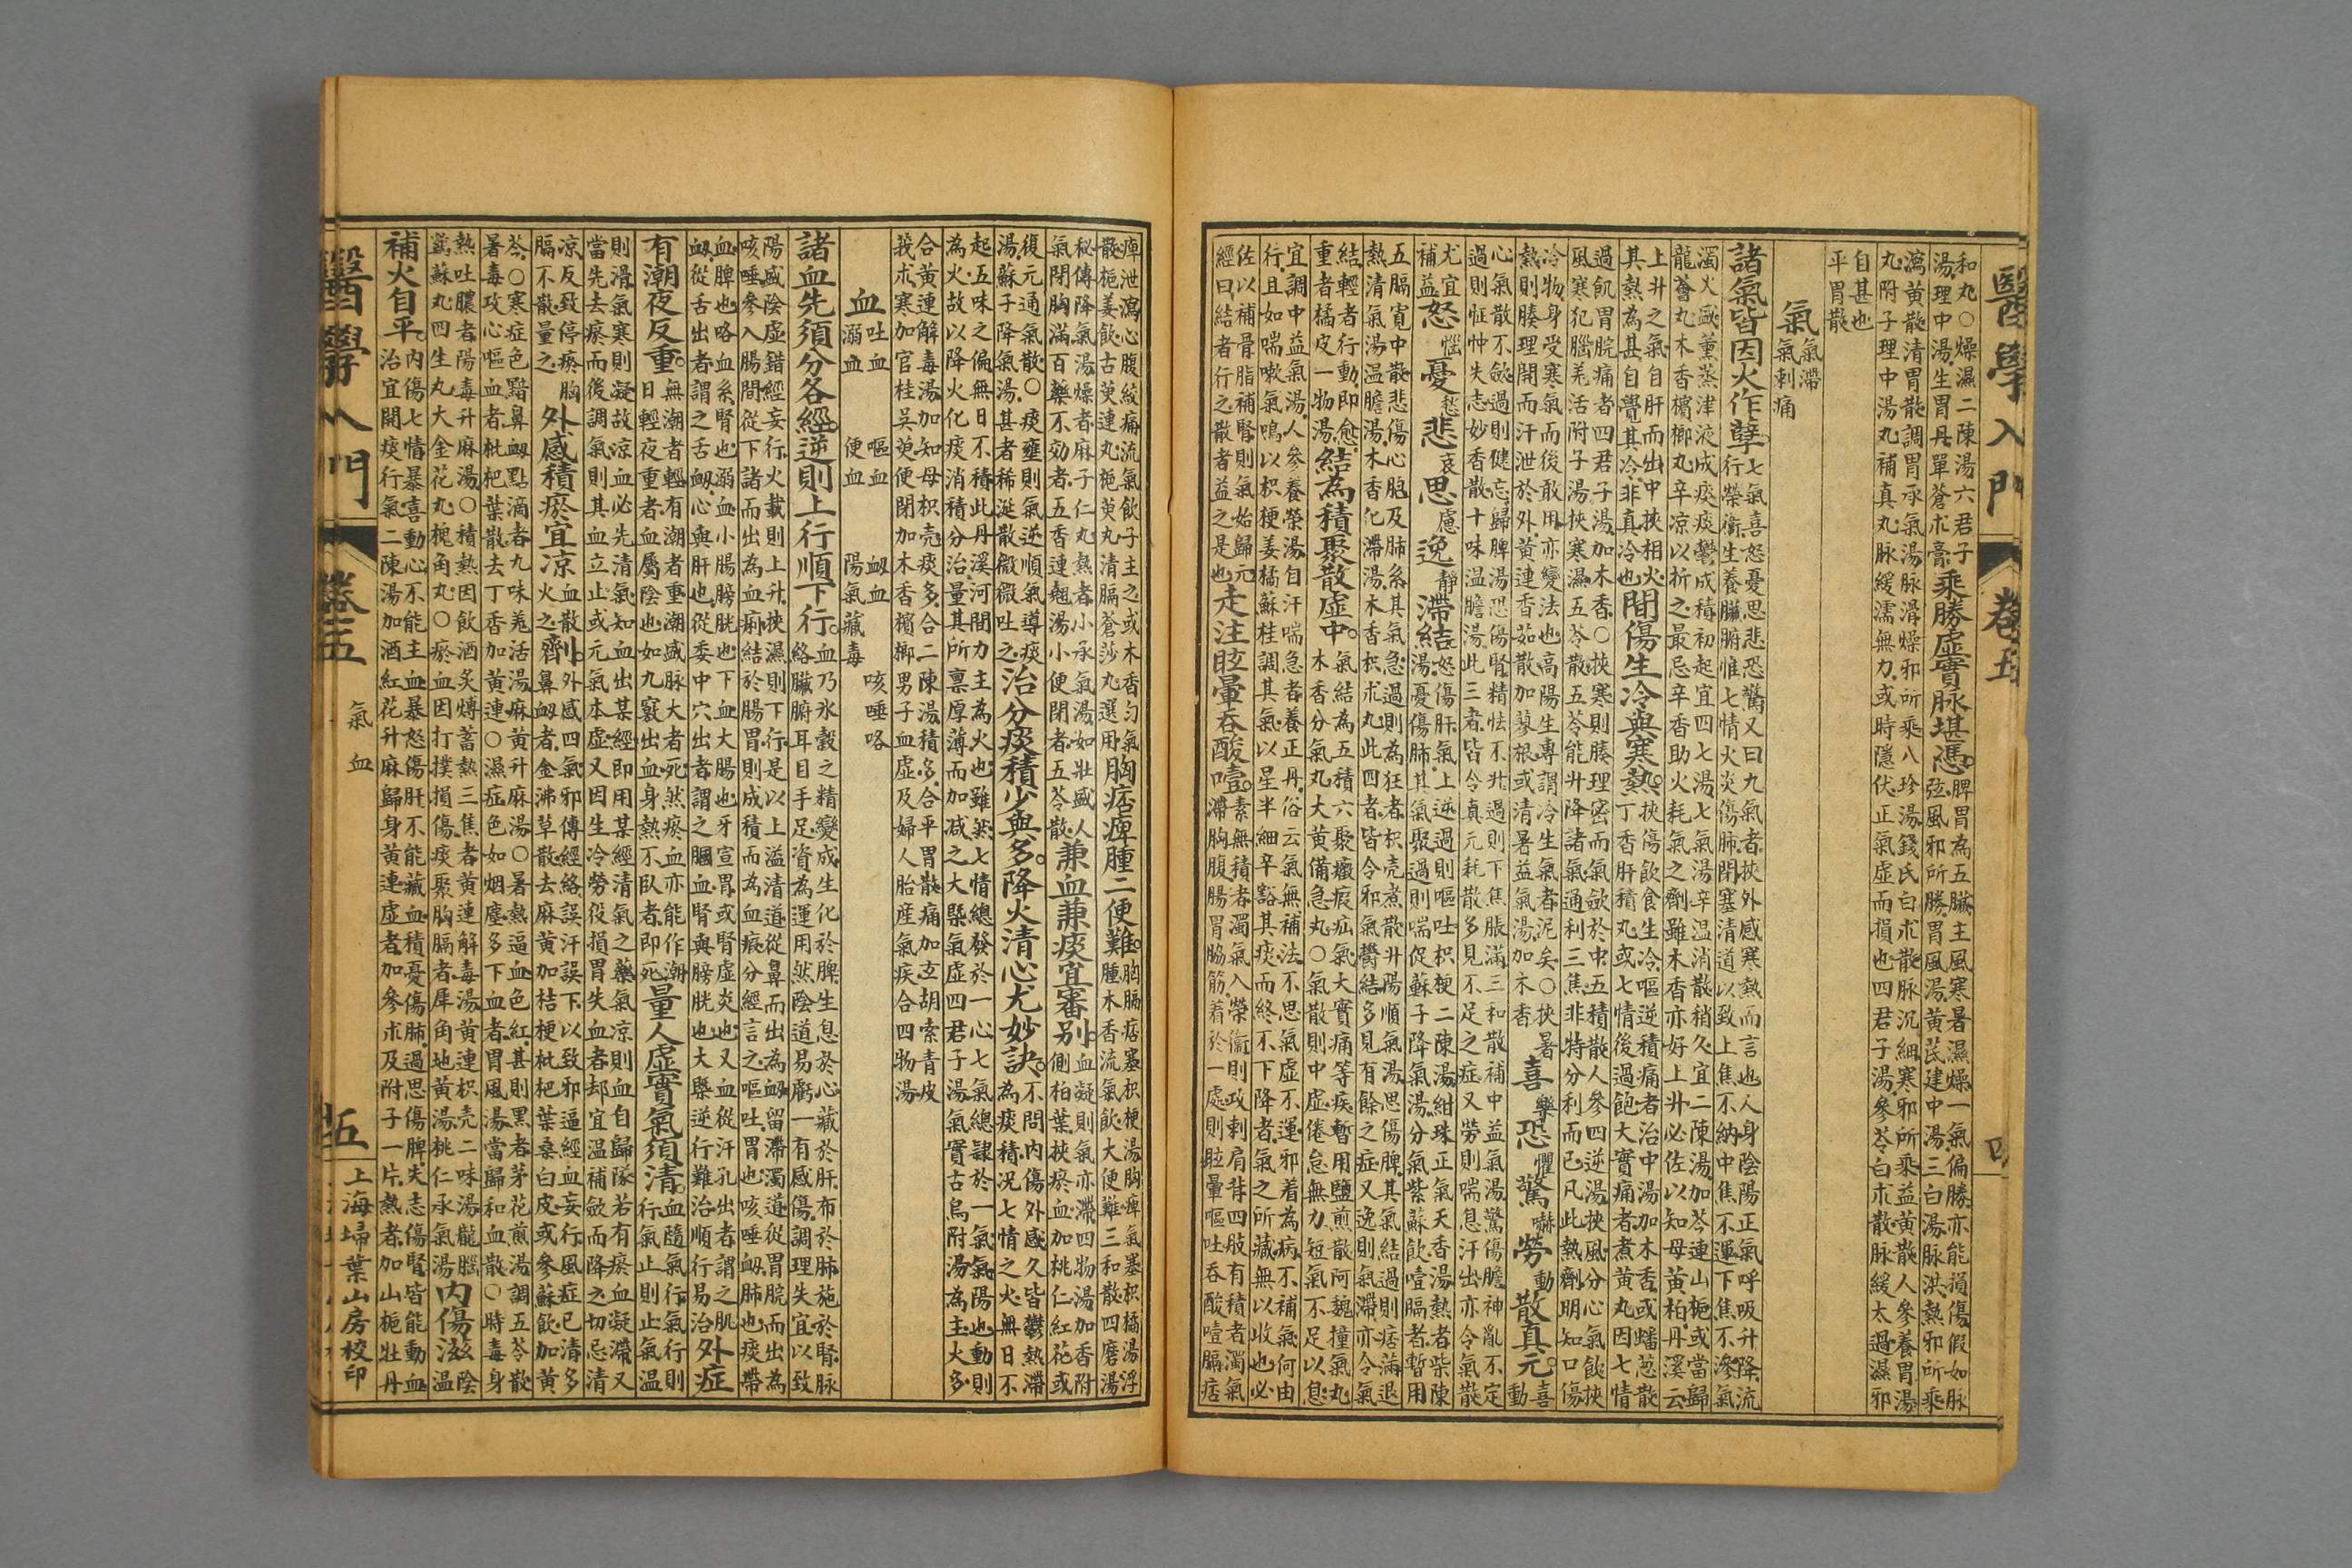 醫學入門 卷五 四
和丸○燥濕二陳湯六君子
湯理中湯生胃丹單蒼朮膏
乘勝虛實脉堪憑
脾胃為五臟主風寒暑濕燥一氣偏勝亦能損傷假如脉
弦風邪所勝胃風湯黃芪建中湯三白湯脉洪熱邪所乘
瀉黃散清胃散調胃承氣湯脉滑燥邪所乘八珍湯錢氏白朮散脉沉細寒邪所乘益黃散人參養胃湯
丸附子理中湯丸補真丸脉緩濡無力或時隱伏正氣虛而損也四君子湯參苓白朮散脉緩太過濕邪
自甚也
平胃散
氣
氣滯
氣刺痛
諸氣皆因火作孽
七氣喜怒憂思悲恐驚又曰九氣者挾外感寒熱而言也人身陰陽正氣呼吸升降流
行榮衛生養臟腑惟七情火炎傷肺閉塞清道以致上焦不納中焦不運下焦不滲氣
濁火毆薰蒸津液成痰痰鬱成積初起宜四七湯七氣湯辛溫消散稍久宜二陳湯加芩連山梔或當歸
龍薈丸木香檳榔丸辛凉以折之最忌辛香助火耗氣之劑雖木香亦好上升必佐以知母黃柏丹溪云
上升之氣自肝而出中挾相火
其熱為甚自覺其冷非真冷也
間傷生冷與寒熱
挾傷飲食生冷嘔逆積痛者治中湯加木香或蟠葱散
丁香肝積丸或七情後過飽大實痛者煮黃丸因七情
過飢胃脘痛者四君子湯加木香○挾寒則腠理密而氣歛於中五積散人參四逆湯挾風分心氣飲挾
風寒犯腦羌活附子湯挾寒濕五苓散五苓能升降諸氣通利三焦非特分利而已凡此熱劑明知口傷
冷物身受寒氣而後敢用亦變法也高陽生專謂冷生氣者泥矣○挾暑
熱則腠理開而汗泄於外黃連香茹散加蓼根或清暑益氣湯加木香
喜樂恐懼驚嚇勞動散真元
喜
動
心氣散不歛過則健忘歸脾湯恐傷腎精怯不升過則下焦脹滿三和散補中益氣湯驚傷膽神亂不定
過則怔忡失志妙香散十味溫膽湯此三者皆令真元耗散多見不足之症又勞則喘息汗出亦令氣散
尤宜
補益
怒惱憂愁悲哀思慮逸靜滯結
怒傷肝氣上逆過則嘔吐枳梗二陳湯紺珠正氣天香湯熱者柴陳
湯憂傷肺其氣聚過則喘促蘇子降氣湯分氣紫蘇飲噎膈者暫用
五膈寬中散悲傷心胞及肺系其氣急過則為狂者枳壳煮散升陽順氣湯思傷脾其氣結過則痞滿退
熱清氣湯溫膽湯木香化滯湯木香枳朮丸此四者皆令邪氣鬱結多見有餘之症又逸則氣滯亦令氣
結輕者行動即愈
重者橘皮一物湯
結為積聚散虛中
氣結為五積六聚癥瘕疝氣大實痛等疾暫用鹽煎散阿魏撞氣丸
木香分氣丸大黃備急丸○氣散則中虛倦怠無力短氣不足以息
宜調中益氣湯人參養榮湯自汗喘急者養正丹俗云氣無補法不思氣虛不運邪着為病不補氣何由
行且如喘嗽氣鳴以枳梗姜橘蘇桂調其氣以星半細辛豁其痰而終不下降者氣之所藏無以收也必
佐以補骨脂補腎則氣始歸元
經曰結者行之散者益之是也
走注眩暈吞酸噎
素無積者濁氣入榮衛則攻刺肩背四肢有積者濁氣
滯胸腹腸胃脇筋着於一處則眩暈嘔吐吞酸噎膈痞
痺泄瀉心腹絞痛流氣飲子主之或木香勻氣
散梔姜飲古萸連丸梔萸丸清膈蒼莎丸選用
胸痞痺腫二便難
胸膈痞塞枳梗湯胸痺氣塞枳橘湯浮
腫木香流氣飲大便難三和散四磨湯
秘傳降氣湯燥者麻子仁丸熱者小承氣湯如壯盛人
氣閉胸滿百藥不効者五香連翹湯小便閉者五苓散
兼血兼痰宜審別
血凝則氣亦滯四物湯加香附
側柏葉挾瘀血加桃仁紅花或
復元通氣散○痰壅則氣逆順氣導痰
湯蘇子降氣湯甚者稀涎散微微吐之
治分痰積少與多降火清心尤妙訣
不問內傷外感久皆鬱熱滯
為痰積況七情之火無日不
起五味之偏無日不積此丹溪河間力主為火也雖然七情總發於一心七氣總隸於一氣氣陽也動則
為火故以降火化痰消積分治量其所禀厚薄而加減之大槩氣虛四君子湯氣實古烏附湯為主火多
合黃連解毒湯加知母枳壳痰多合二陳湯積多合平胃散痛加玄胡索青皮
莪朮寒加官桂吳萸便閉加木香檳榔男子血虛及婦人胎産氣疾合四物湯
血
吐血 嘔血 衂血 咳唾咯
溺血 便血 陽氣藏毒
諸血先須分各經逆則上行順下行
血乃水穀之精變成生化於脾生息於心藏於肝布於肺施於腎脉
絡臟腑耳目手足資為運用然陰道易虧一有感傷調理失宜以致
陽盛陰虛錯經妄行火載則上升挾濕則下行是以上溢清道從鼻而出為衂留滯濁道從胃脘而出為
咳唾參入腸間從下諸而出為血痢結於腸胃則成積而為血瘕分經言之嘔吐胃也咳唾衂肺也痰帶
血脾也咯血系腎也溺血小腸膀胱也下血大腸也牙宣胃或腎虛炎也又血從汗孔出者謂之肌
衂從舌出者謂之舌衂心與肝也從委中穴出者謂之膕血腎與膀胱也大槩逆行難治順行易治
外症
有潮夜反重
無潮者輕有潮者重潮盛脉大者死然瘀血亦能作潮
日輕夜重者血屬陰也如九竅出血身熱不臥者即死
量人虛實氣須清
血隨氣行氣行則
行氣止則止氣溫
則滑氣寒則凝故涼血必先清氣知血出某經即用某經清氣之藥氣凉則血自歸隊若有瘀血凝滯又
當先去瘀而後調氣則其血立止或元氣本虛又因生冷勞役損胃失血者却宜溫補歛而降之切忌清
凉反致停瘀胸
膈不散量之
外感積瘀宜凉
血散
火之
劑
外感四氣邪傳經絡誤汗誤下以致邪逼經血妄行風症已清多
鼻衂者金沸草散去麻黃加桔梗枇杷葉桑白皮或參蘇飲加黃
芩○寒症色黯鼻衂點滴者九味羌活湯麻黃升麻湯○暑熱逼血色紅甚則黑者茅花煎湯調五苓散
暑毒攻心嘔血者枇杷葉散去丁香加黃連○濕症色如烟塵多下血者胃風湯當歸和血散○時毒身
熱吐膿者陽毒升麻湯○積熱因飲酒炙煿蓄熱三焦者黃連解毒湯黃連枳壳二味湯龍腦
鷄蘇丸四生丸大金花丸槐角丸○瘀血因打撲損傷痰聚胸膈者犀角地黃湯桃仁承氣湯
內傷滋
陰
溫
補火自平
內傷七情暴喜動心不能主血暴怒傷肝不能藏血積憂傷肺過思傷脾失志傷腎皆能動血
治宜開痰行氣二陳湯加酒紅花升麻歸身黃連虛者加參朮及附子一片熱者加山梔牡丹
醫學入門 卷五 氣血 五 上海埽葉山房校印